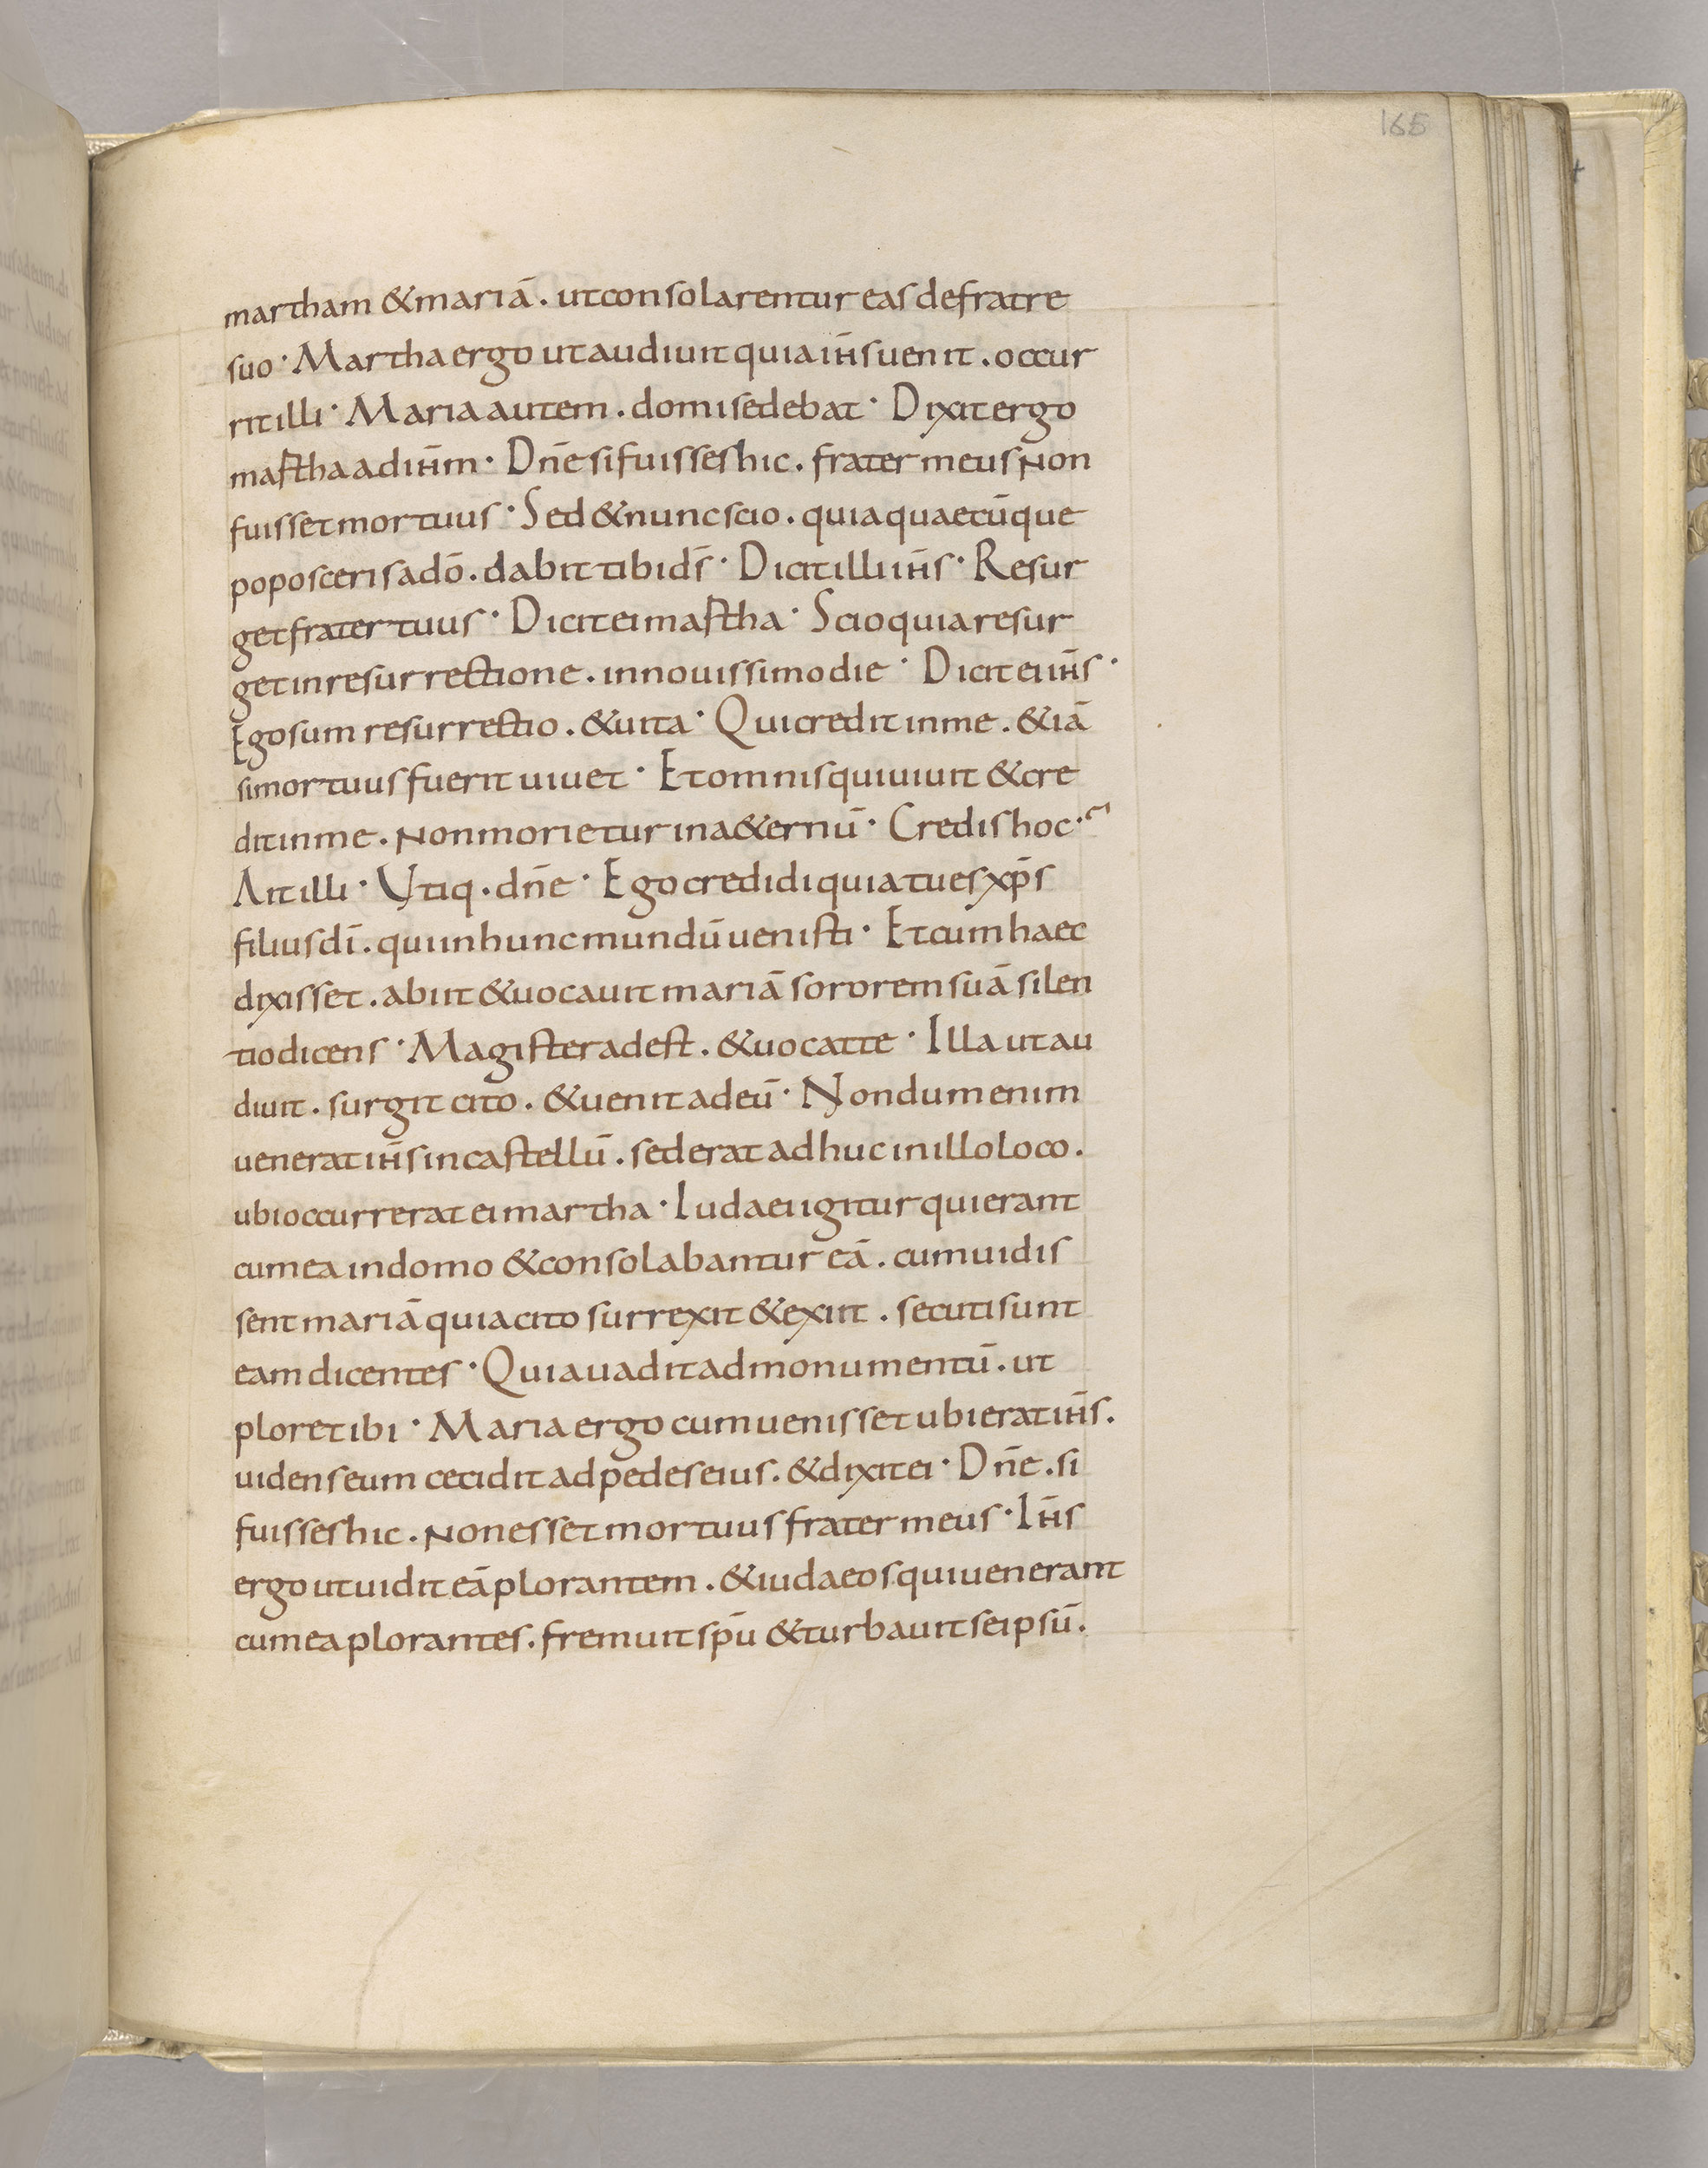 165
martham & mariā. ut consolarentur eas de fratre
suo· Martha ergo ut audiuit quia ihs̄ uenit. occur
rit illi· Maria autem. domi sedebat· Dixit ergo
martha ad ihm̄· Dn̄e si fuisses hic. frater meus non
fuisset mortuus· Sed & nunc scio. quia quaecūque
poposceris a dō. dabit tibi ds̄· Dicit illi ihs̄· Resur
get frater tuus· Dicit ei martha· Scio quia resur
get in resurrectione. in nouissimo die· Dicit ei ihs̄·
Ego sum resurrectio. & uita· Qui credit in me. &iā
si mortuus fuerit uiuet· Et omnis qui uiuit & cre
dit in me. non morietur in a&ernū· Credis hoc·~
Ait illi· Vtiq. dn̄e· Ego credidi quia tu es xp̄s
filius dī. qui in hunc mundū uenisti· Et cum haec
dixisset. abiit & uocauit mariā sororem suā silen
tio dicens· Magister adest. & uocat te· Illa ut au
diuit. surgit cito. & uenit ad eū· Nondum enim
uenerat ihs̄ in castellū. sed erat adhuc in illo loco.
ubi occurrerat ei martha· Iudaei igitur qui erant
cum ea in domo & consolabantur eā. cum uidis
sent mariā quia cito surrexit & exiit. secuti sunt
eam dicentes· Quia uadit ad monumentū. ut
ploret ibi· Maria ergo cum uenisset ubi erat ihs̄.
uidens eum cecidit ad pedes eius. & dixit ei· Dn̄e. si
fuisses hic. non esset mortuus frater meus· Ihs̄
ergo ut uidit eā plorantem. & iudaeos qui uenerant
cum ea plorantes. fremuit spū & turbauit seipsū.